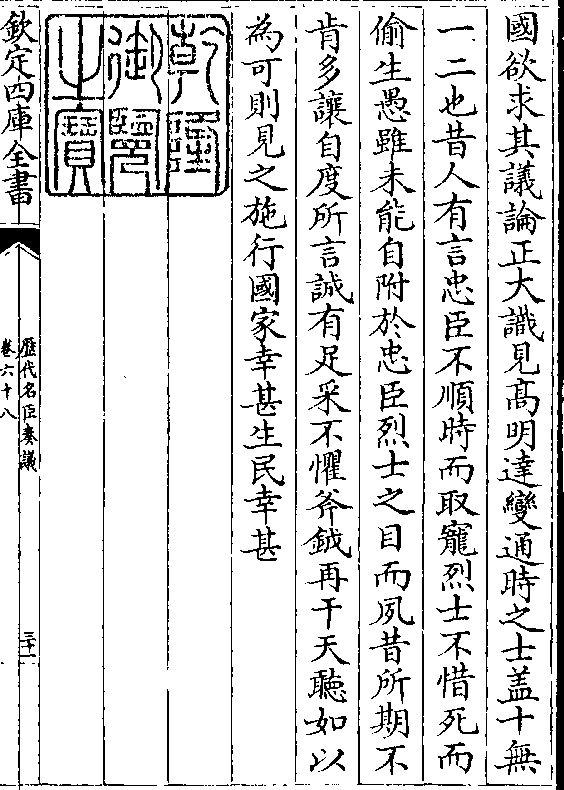 國欲求其議論正大識見髙明達變通時之士盖十無
一二也昔人有言忠臣不順時而取寵烈士不惜死而
偷生愚雖未能自附於忠臣烈士之目而夙昔所期不
肯多讓自度所言誠有足采不懼斧鉞再干天聽如以
為可則見之施行國家幸甚生民幸甚
乾隆
御覽
之寶
欽定四庫全書
歷代名臣奏議
卷六十八
三十一